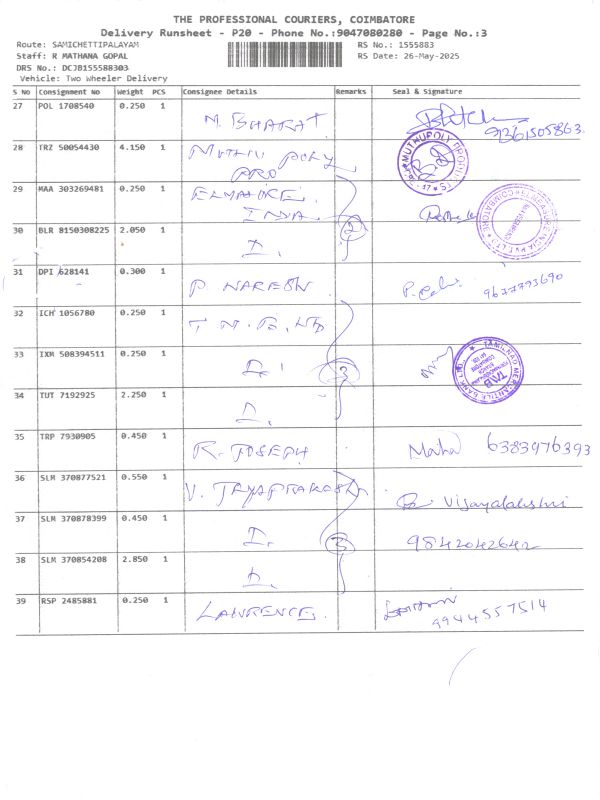 THE PROFESSIONAL COURIERS, COIMBATORE
Delivery Runsheet - P20 - Phone No.:9047080280 - Page No.:3
Route: SAMICHETTIPALAYAM RS No.: 1555883
Staff: R MATHANA GOPAL RS Date: 26-May-2025
DRS No.: DCJB155588303
Vehicle: Two Wheeler Delivery
S No Consignment No Weight PCS Consignee Details Remarks Seal & Signature
27 POL 1708540 0.250 1 M. BHARAT.
28 TRZ 50054430 4.150 1 MUTHU POLY
PRO
29 MAA 303269481 0.250 1
INDIA
30 BLR 8150308225 2.050 1 D. 2
31 DPI 628141 0.300 1 P NARESH P. 9677793690
32 ICH 1056780 0.250 1 T M. B, LTD
33 IXM 508394511 0.250 1 D. 3
34 TUT 7192925 2.250 1 D.
35 TRP 7930905 0.450 1 R. JOSEPH Maha 6383976393
36 SLM 370877521 0.550 1 V. JEYAPRAKASH Vijayalakshmi
37 SLM 370878399 0.450 1 D. 3 9842042642
38 SLM 370854208 2.850 1 D.
39 RSP 2485881 0.250 1 LAWRENCE. 9944557514